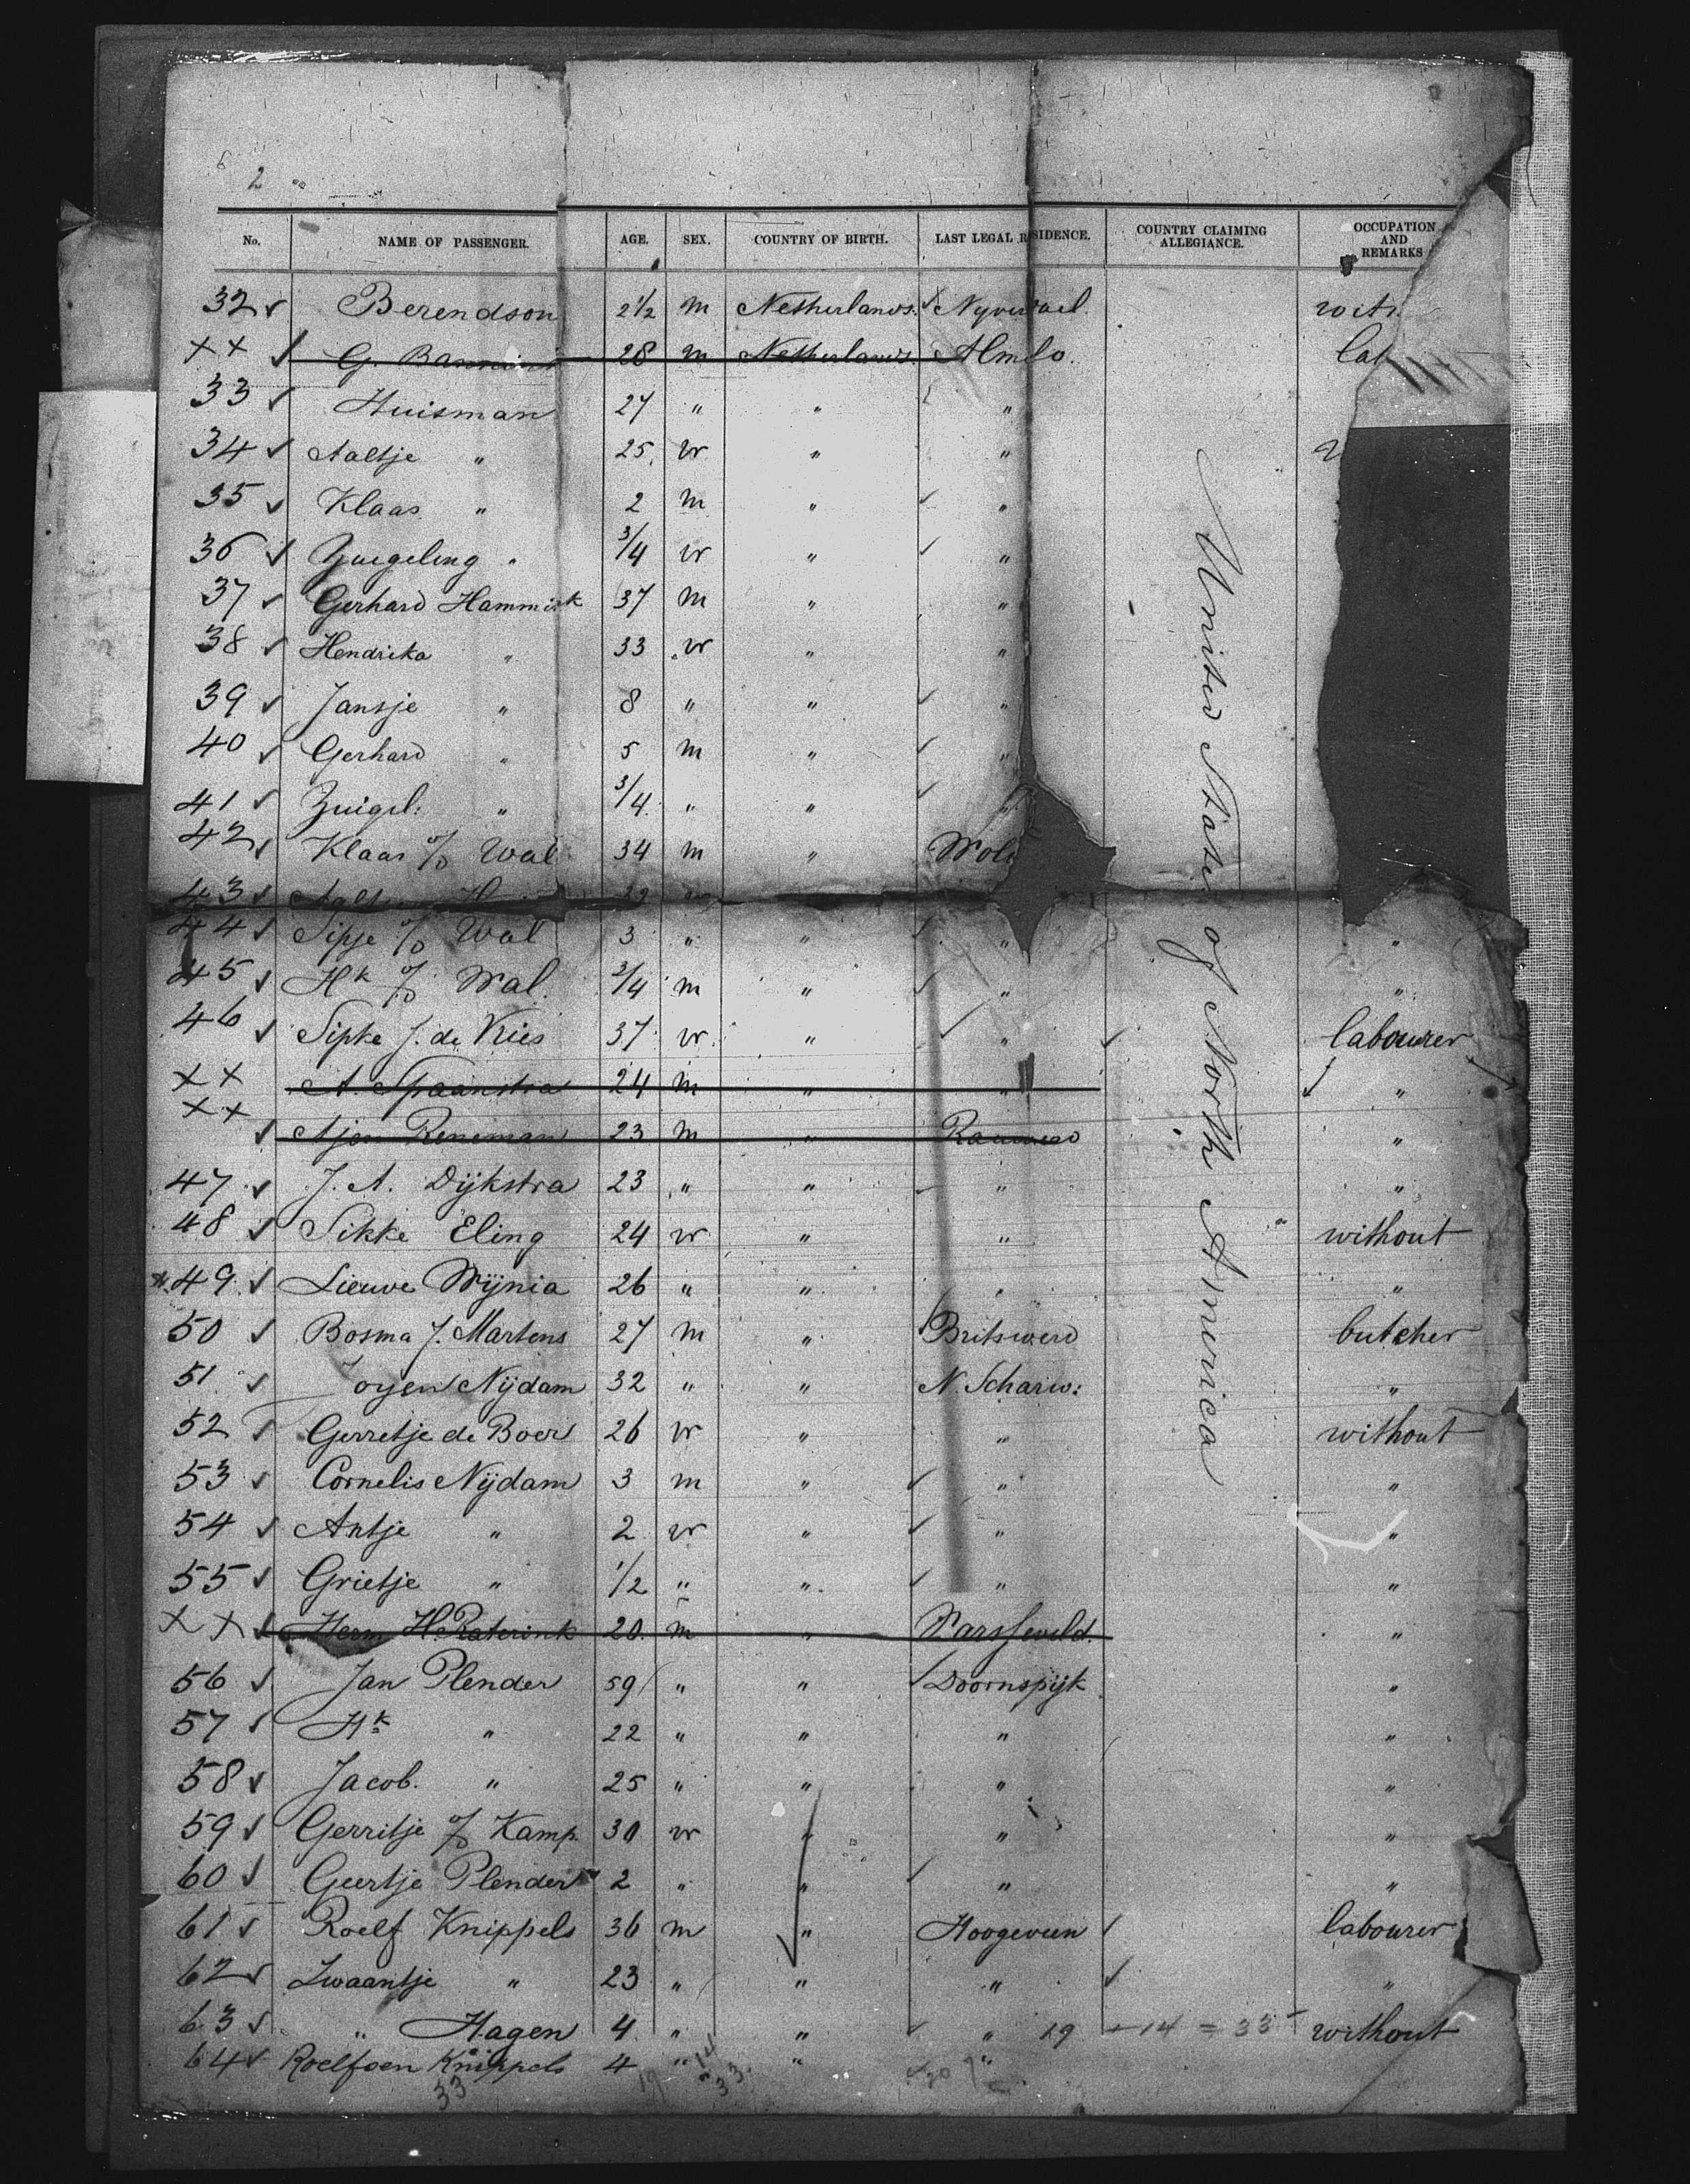 2
No. NAME OF PASSENGER. AGE. SEX. COUNTRY OF BIRTH. LAST LEGAL RESIDENCE. COUNTRY CLAIMING ALLEGIANCE. OCCUPATION AND REMARKS
32 Berendson 2 1/2 m Netherlands.
xx G. 28 m Netherlands. Almlo.
33 Huisman 27 " " "
34 Aaltje " 25. w " "
35 Klaas " 2 m " "
36 Zuegeling " 3/4 w " "
37 Gerhard Hammink 37 m " "
38 Hendrika " 33 w " "
39 Jansje " 8 " " "
40 Gerhard " 5 m " "
41 Zuigel: " 3/4 " " "
42 Klaas v/d Wal 34 m "
43
44 Sipje v/d Wal 3 " " " "
45 Hk v/d Wal 3/4 m " " "
46 Sipke J. de Vries 37 w " " labourer
xx A. Spaanstra 24 m " " "
xx Reneman 23 m " "
47 J. A. Dijkstra 23 " " " "
48 Sikke Eling 24 w " " without
49 Lieuwe Wijnia 26 " " " "
50 Bosma J. Martens 27 m " Britswerd butcher
51 Nijdam 32 " " N. Scharw: "
52 Gerretje de Boer 26 w " " without
53 Cornelis Nijdam 3 m " " "
54 Antje " 2 w " " "
55 Grietje " 1/2 " " " "
xx Herm H. Raterink 20. m " Varsseveld. "
56 Jan Plender 59 " " Doornspijk "
57 Hk " 22 " " " "
58 Jacob. " 25 " " " "
59 Gerritje v/d Kamp 30 w " " "
60 Geertje Plender 2 " " " "
61 Roelf Knippels 36 m " Hoogeveen labourer
62 Zwaantje " 23 " " " "
63 " Hagen 4 " " " 19 + 14 = 33 without
64 Roelfoen Knippels 4 " " "
33 19 14 33
United States of North America